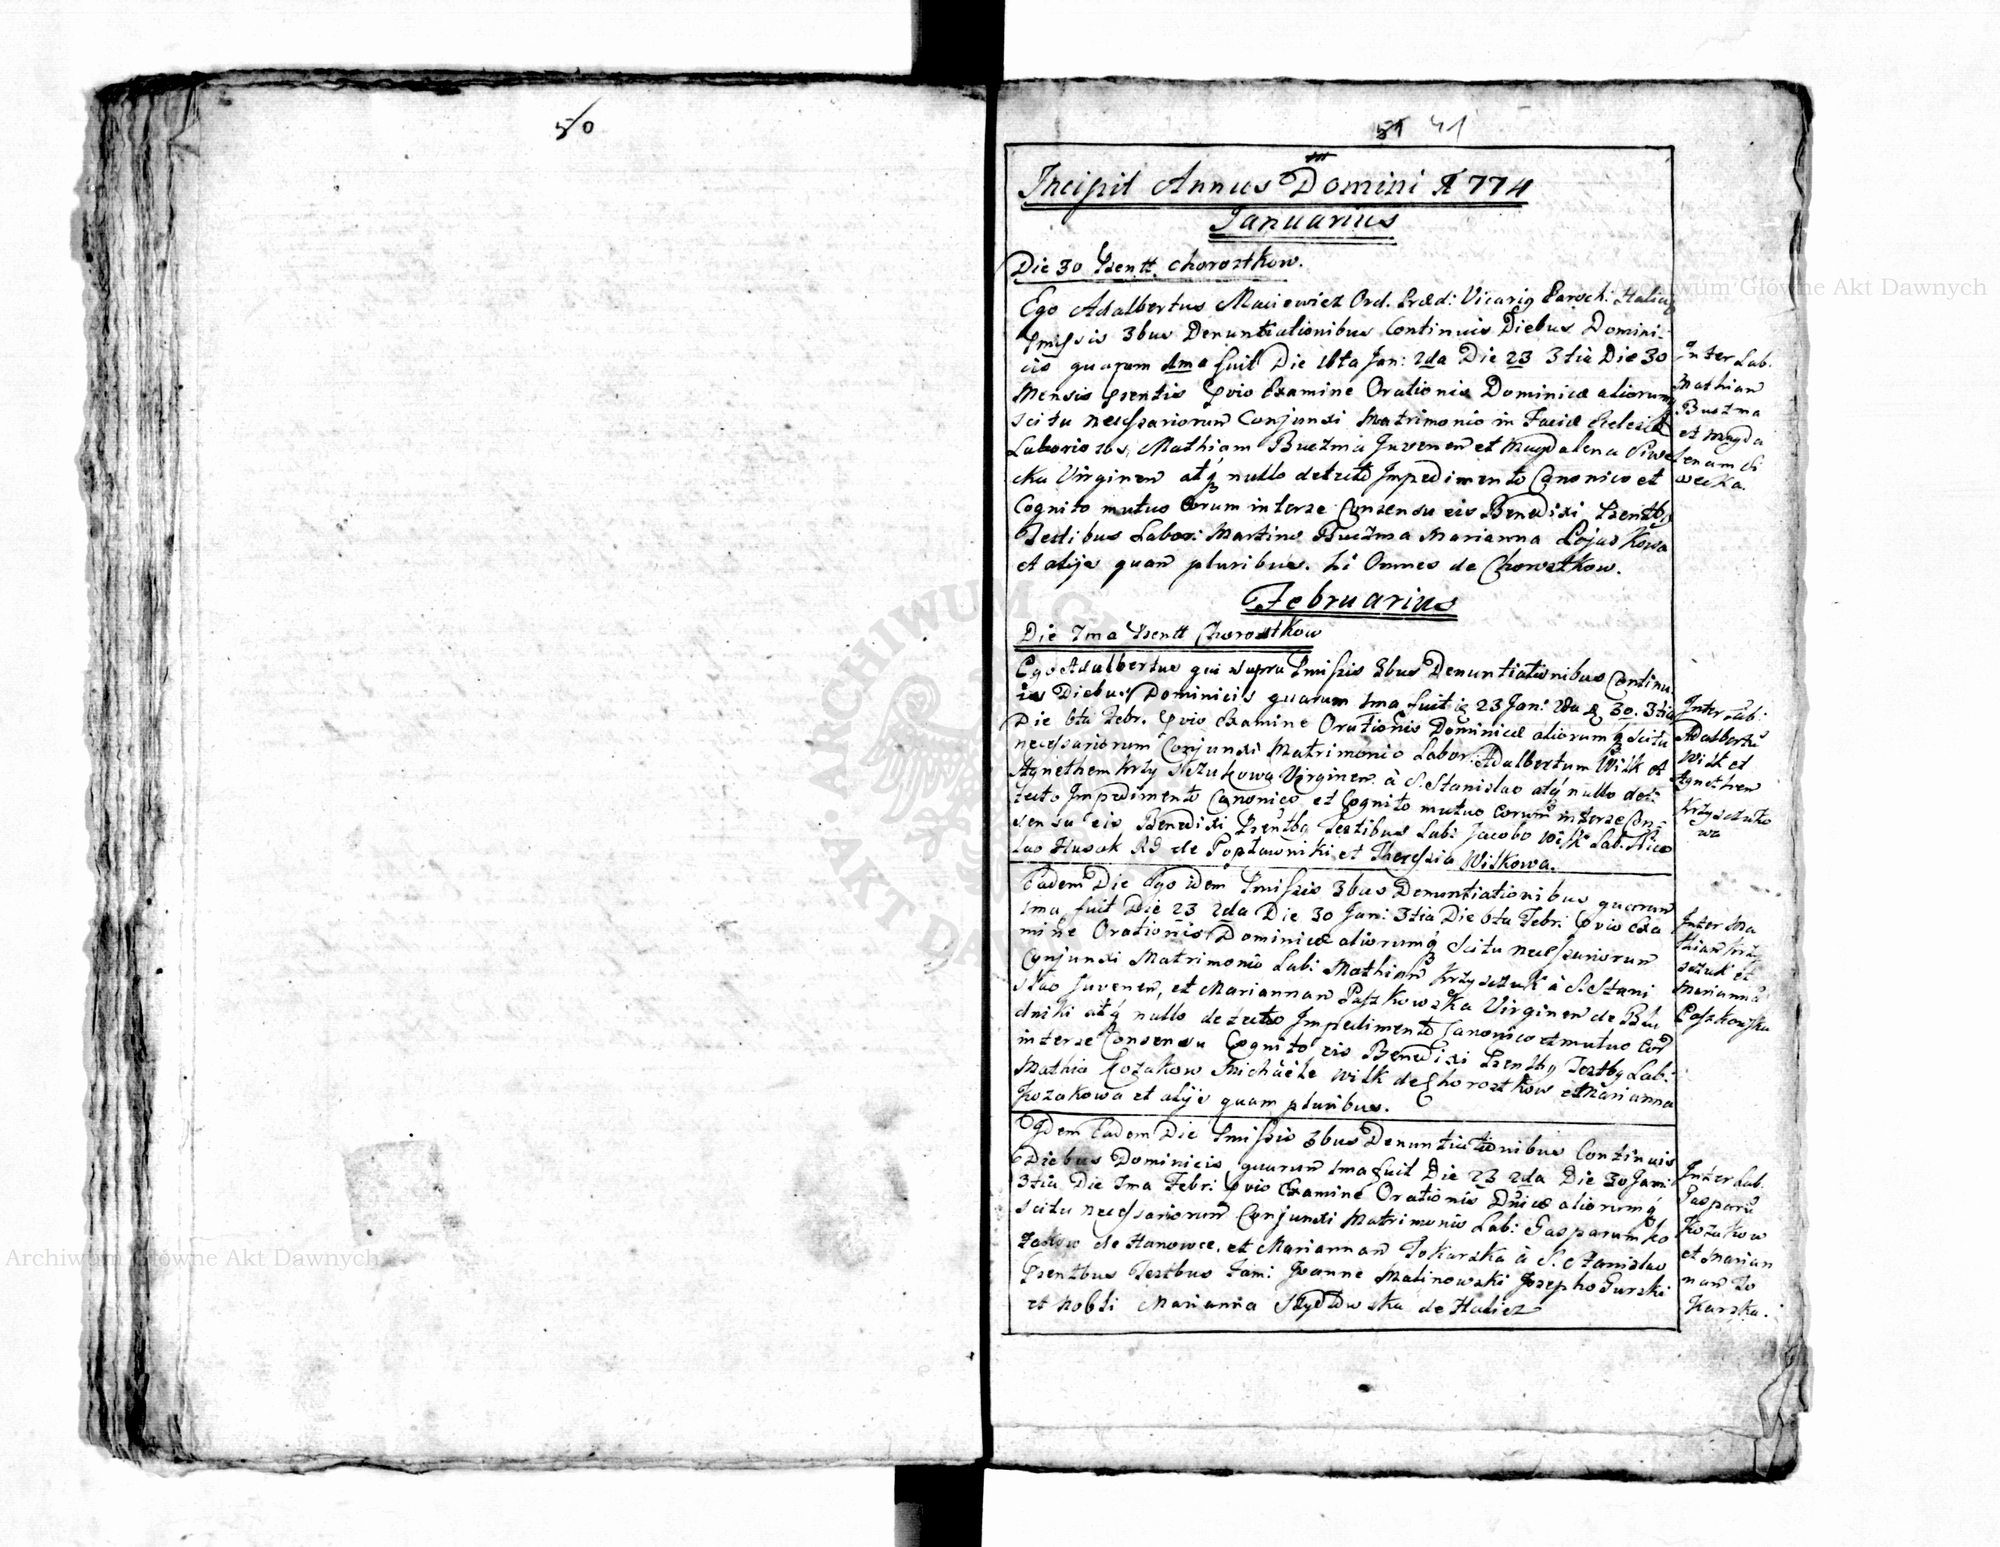 50
51 41
Incipit Annus Domini 1774
Januarius
Die 30 Psentt. Chorostkow.
Ego Adalbertus Maciewicz Ord. Præd: Vicariq Paroch: Halicz
Pmissis 3bus Denuntiationibus Continuis Diebus Domini-
cis quarum 1ma fuit Die 16ta Jan: 2da Die 23 3tia Die 30
Mensis psentis pvio Examine Orationis Dominicæ aliorumq
scitu necessariorum Conjunxi Matrimonio in Facie Eclesiæ
Laboriosos, Mathiam Buczma Juvenem et Magdalena Siwe
cka Virginem atq nullo detecto Impedimento Canonico et
Cognito mutuo Eorum interse Consensu eis Benedixi Psentbq
Testibus Labori: Martino Buczma Marianna Lojas Kowa
et alijs quam pluribus. hi Omnes de Chorostkow.
Inter Lab.
Mathiam
Buczma
et Magda
lenam Si
wecka.
Februarius
Die 7ma Psentt Chorostkow
Ego Adalbertus qui supra Pmissis 3bus Denuntiationibus Continu
is Diebus Dominicis quarum 1ma fuit 23 Jan: 2da 30. 3tia
Die 6ta Febr. pvio Examine Orationis Dominicæ aliorumq scitu
necessariorum Conjunxi Matrimonio Labor. Adalbertum Wilk et
Agnethem Krzysczukowa Virginem à S. Stanislao atq nullo det:
tecto Impedimento Canonico et Cognito mutuo eorum interse Con-
sensu eis Benedixi Psentbq Testibus Lab: Jacobo Wilk Lab. Nico
lao Husak de Poplawniki et Theressia Wilkowa.
Inter Lab:
Adalbertū
Wilk et
Agnethem
Krzysczuko
wa
Eadem Die Ego idem Pmissis 3bus Denuntiationibus quarum
1ma fuit Die 23 2da Die 30 Jan: 3tia Die 6ta Febr: pvio Exa
mine Orationis Dominicæ aliorumq scitu necessariorum
Conjunxi Matrimonio Lab: Mathiam Krzysczuk à S. Stani
slao Juvenem, et Mariannam Paszkowska Virginem de Blu
dniki atq nullo detecto Impedimento Canonico et mutuo Eor
interse Consensu Cognito eis Benedixi Psentbq Testbq Lab:
Mathia Kozakow Michaele Wilk de Chorostkow et Marianna
Kozakowa et alijs quam pluribus.
Inter Ma
thiam Krzy
sczuk et
Marianna
Paszkowska
Idem Eadem Die Pmissis 3bus Denuntiationibus Continuis
Diebus Dominicis quarum 1ma fuit Die 23 2da Die 30 Jan:
3tia Die 7ma Febr: pvio Examine Orationis Dnicæ aliorumq
scitu necessariorum Conjunxi Matrimonio Lab: Gasparum Ko
zakow de Hanowce, et Mariannam Tokarska à S. Stanislao
Psentbus Testbus Fam: Joanne Malinowski Josepho Gurski
et Nobli Marianna de Halicz
Inter Lab.
Gasparū
Kozakow
et Marian
nam To
karska.
Archiwum Główne Akt Dawnych
Archiwum Główne Akt Dawnych